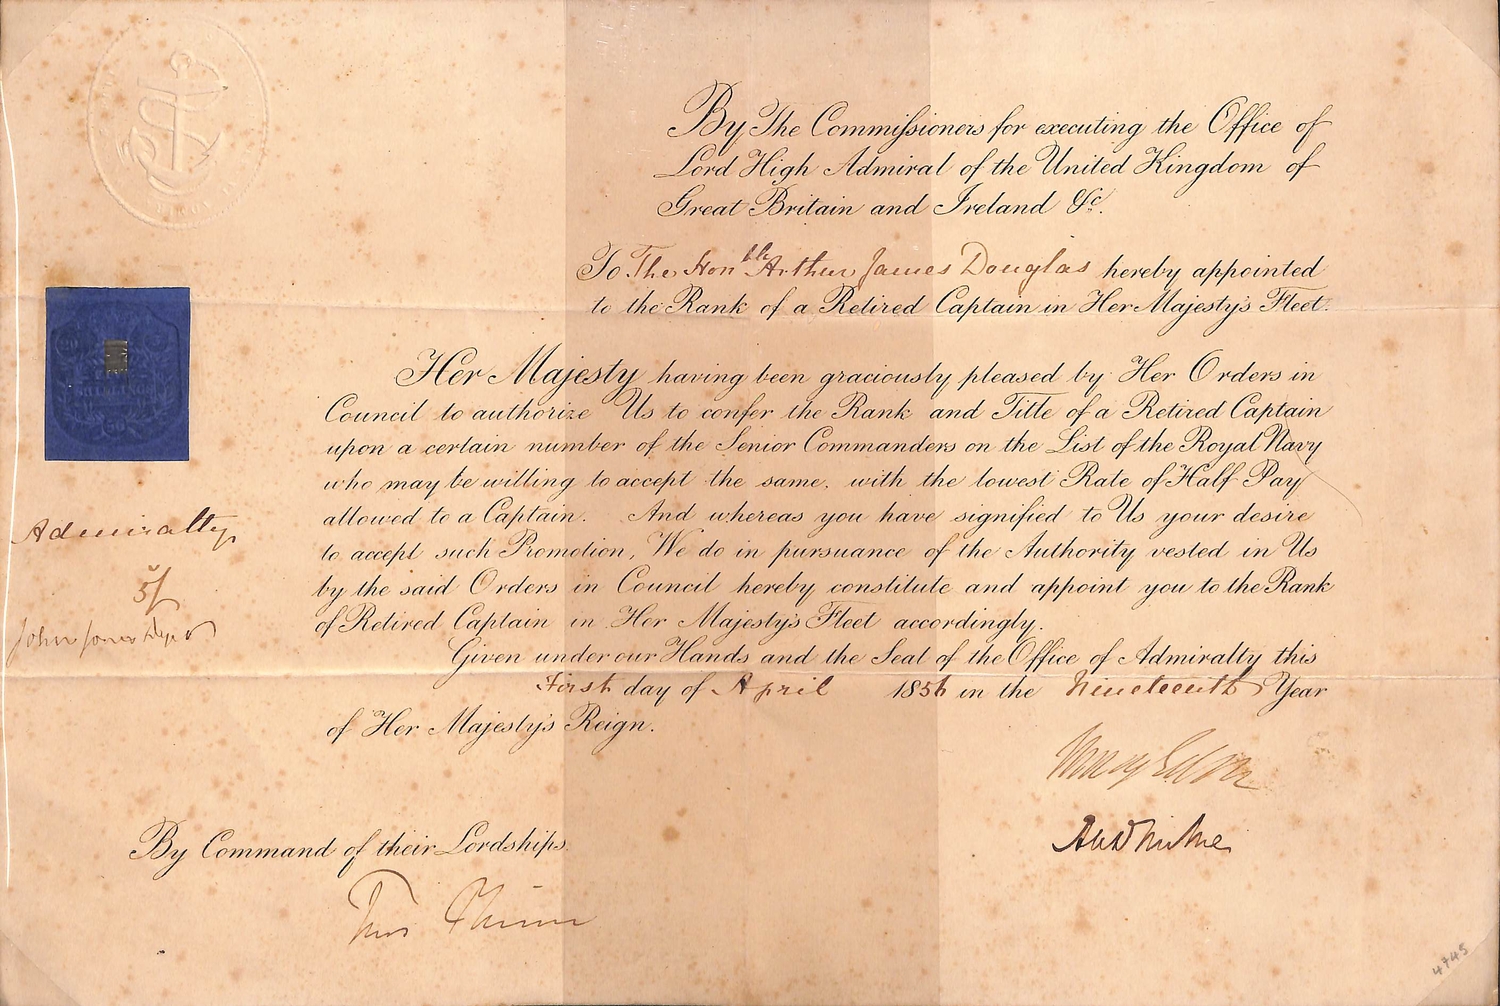 By The Commissioners for executing the Office of
Lord High Admiral of the United Kingdom of
Great Britain and Ireland &c.
To The Honble Arthur James Douglas hereby appointed
to the Rank of a Retired Captain in Her Majesty's Fleet.
Her Majesty having been graciously pleased by Her Orders in
Council to authorize Us to confer the Rank and Title of a Retired Captain
upon a certain number of the Senior Commanders on the List of the Royal Navy
who may be willing to accept the same, with the lowest Rate of Half Pay
allowed to a Captain. And whereas you have signified to Us your desire
to accept such Promotion, We do in pursuance of the Authority vested in Us
by the said Orders in Council hereby constitute and appoint you to the Rank
of Retired Captain in Her Majesty's Fleet accordingly.
Given under our Hands and the Seal of the Office of Admiralty this
First day of April 1856 in the Nineteenth Year
of Her Majesty's Reign.
Admiralty
5/
John Jones Dyer
By Command of their Lordships.
Thos Phinn
4745